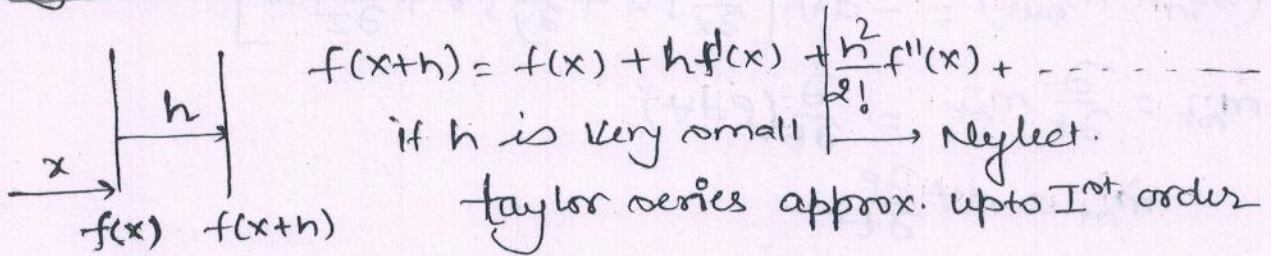 f(x+h) = f(x) + hf'(x) + h²/2! f''(x) + - - - - - - -
h
if h is very small → Neglect.
x
taylor series approx. upto Ist order
f(x) f(x+h)